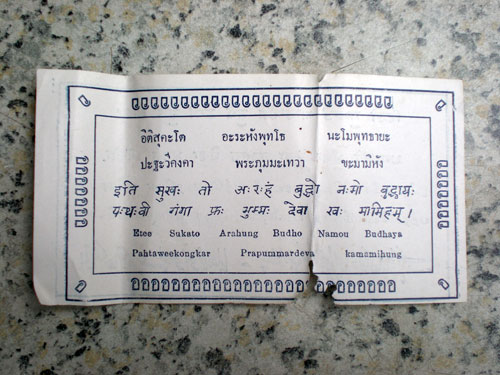 อิติสุคะโต อะระหังพุทโธ นะโมพุทธายะ
ปะฐะวีคงคา พระภุมมะเทวา ขะมามิหัง
इति सुखः तो अःरःहं बुद्धो नःमो बुद्धायः
पःथःवी गंगा फ्रः भुम्मः देवा खः मामिहम् ।
Etee Sukato Arahung Budho Namou Budhaya
Pahtaweekongkar Prapummardeva kamamihung